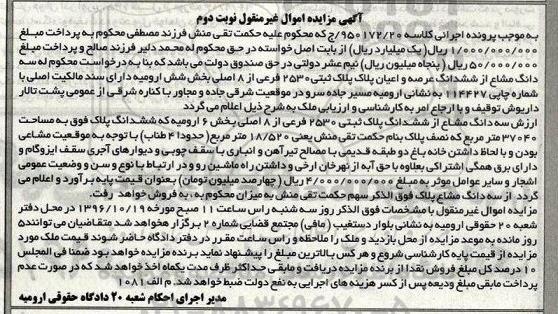 آگهی مزایده اموال غیرمنقول نوبت دوم
به موجب پرونده اجرائی کلاسه ۹۵۰۱۷۲/۲۰ج که محکوم علیه حکمت تقی منش فرزند مصطفی محکوم به پرداخت مبلغ
۱/۰۰۰/۰۰۰/۰۰۰ ریال( یک میلیارد ریال) از بابت اصل خواسته در حق محکوم له محمد دلیر فرزند صالح و پرداخت مبلغ
۵۰/۰۰۰/۰۰۰ ریال (پنجاه میلیون ریال) نیم عشر دولتی در حق صندوق دولت می باشد که بنا به درخواست محکوم له سه
دانگ مشاع از ششدانگ عرصه و اعیان پلاک پلاک ثبتی ۲۵۳۰ فرعی از ۸ اصلی بخش شش ارومیه دارای سند مالکیت اصلی با
شماره چاپی ۱۱۴۴۲۷ به نشانی ارومیه مسیر جاده سرو در موقعیت شرقی جاده و مجاور با کناره شرقی از عمومی پشت تالار
داریوش توقیف و با ارجاع امر به کارشناسی و ارزیابی ملک به شرح ذیل اعلام می گردد
ارزش سه دانگ مشاع از ششدانگ پلاک ثبتی ۲۵۳۰ فرعی از ۸ اصلی بخش ۶ ارومیه که ششدانگ پلاک فوق به مساحت
۳۷۰۴۰ متر مربع که نصف پلاک بنام حکمت تقی منش یعنی ۱۸/۵۲۰ متر مربع (حدودا ۴ طناب) با توجه به موقعیت مشاعی
بودن و با لحاظ داشتن خانه باغ دو طبقه قدیمی با مصالح تیرآهن و انباری با سقف چوبی و دیوارهای آجری سقف ایزوگام و
دارای برق همگی اشتراکی بعلاوه با حق آبه از نهرخان ارخی و داشتن راه ماشین رو و در ارتباط با نوع و سن و وضعیت عمومی
اشجار و سایر عوامل موثر به مبلغ ۴/۰۰۰/۰۰۰/۰۰۰ ریال (چهارصد میلیون تومان) بعنوان قیمت پایه برآورد و اعلام می
گردد از سه دانگ مشاع پلاک فوق الذکر سهم حکمت تقی منش به میزان محکوم به، به فروش خواهد رفت.
مزایده اموال غیرمنقول با مشخصات فوق الذکر روز سه شنبه راس ساعت ۱۱ صبح مورخه ۱۳۹۶/۱۰/۱۹ در محل دفتر
شعبه ۲۰ حقوقی ارومیه به نشانی بلوار دستغیب (مافی) مجتمع قضایی شماره ۲ برگزار خواهد شد متقاضیان می توانند۵
روز مانده به موعد مزایده از محل بازدید و ملک را ملاحظه و راس ساعت مقرر در دفتر دادگاه حاضر شوند قیمت ملک مورد
مزایده از قیمت پایه کارشناسی شروع و هر کس بالاترین مبلغ را پیشنهاد نماید برنده مزایده خواهد بود ضمنا فی المجلس
۱۰ درصد کل مبلغ فروش نقدا از برنده مزایده دریافت و مابقی حداکثر ظرف مدت یکماه اخذ خواهد شد که در صورت عدم
پرداخت مابقی مبلغ ودیعه پس از کسر هزینه های اجرایی به نفع دولت ضبط خواهد شد. م الف ۱۰۸۱
مدیر اجرای احکام شعبه ۲۰ دادگاه حقوقی ارومیه